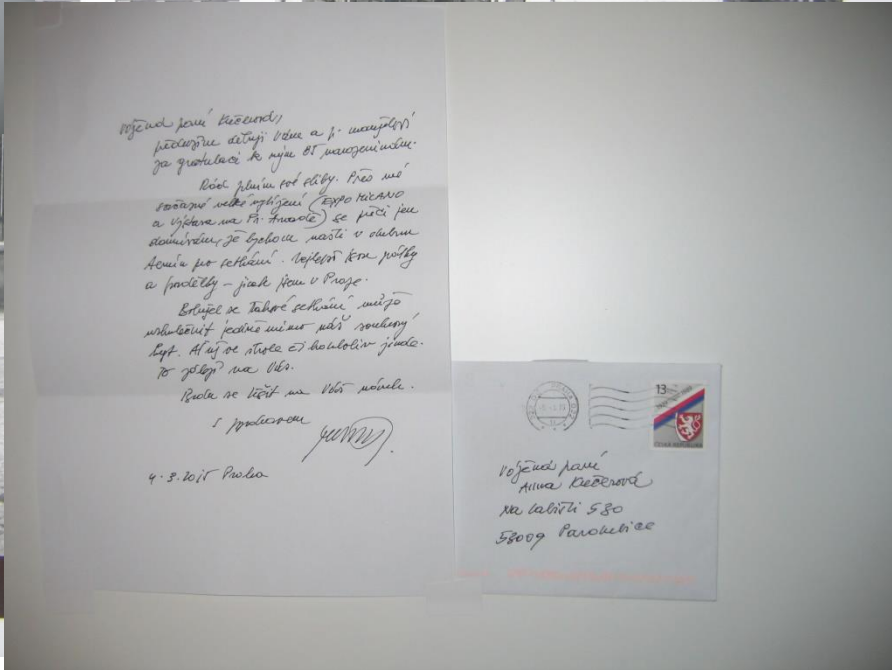 Vážená paní Kučerová,
předevšim děkuji Vám a p. manželovi
za gratulaci k mým 85 narozeninám.
Rád plním své sliby. Přes mé
současné velké vytížení (EXPO MILANO
a výstava na Pr. hradě) se přeci jen
domnívám, že bychom našli v dubnu
termín po setkání. Nejlepší jsou pátky
a pondělky – jinak jsem v Praze.
Bohužel se takové setkání může
uskutečnit jedině mimo náš soukromý
byt. Ať už ve škole či kdekoliv jinde.
To záleží na Vás.
Budu se těšit na Váš návrh.
S pozdravem
4.3.2015 Praha
13
ČESKÁ REPUBLIKA
Vážená paní
Anna Kučerová
Na Labišti 580
53009 Pardubice